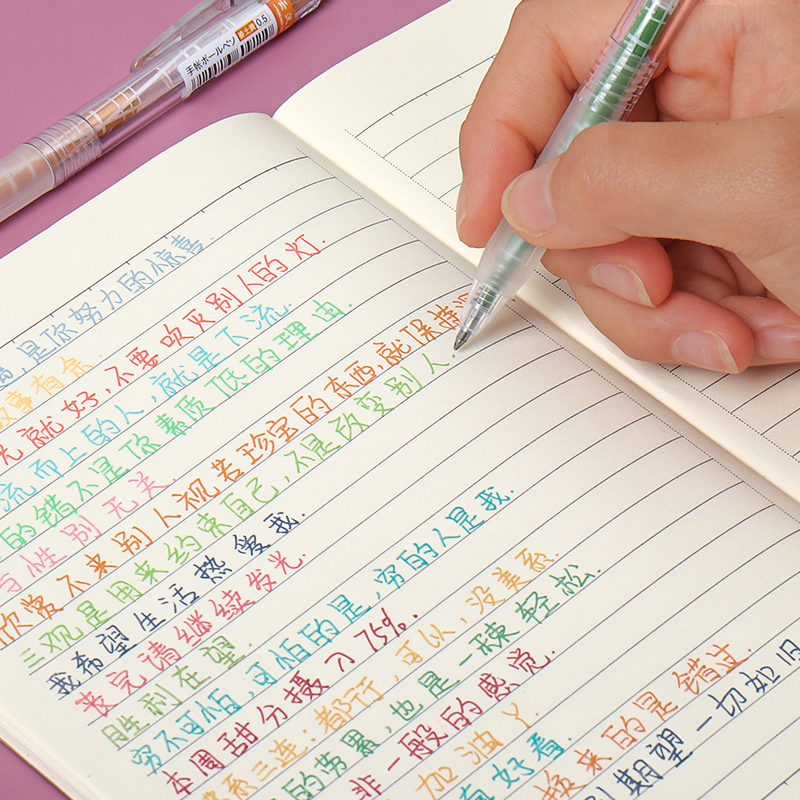 手帐ボールペン
0.5
是你努力的惊喜.
故事有余.
光就好,不要吹灭别人的灯.
流而上的人,就是下流.
的错不是你素质低的理由
与性别无关.
欣赏不来别人视若珍宝的东西,就保持
三观是用来约束自己,不是改变别人.
我希望生活热爱我.
丧完请继续发光.
胜利在望.
穷不可怕,可怕的是,穷的人是我.
本周甜分摄入75%.
系三连:都行,可以,没关系.
的劳累,也是一种轻松.
非一般的感觉.
加油丫
有好看.
换来的是错过.
期望一切如旧